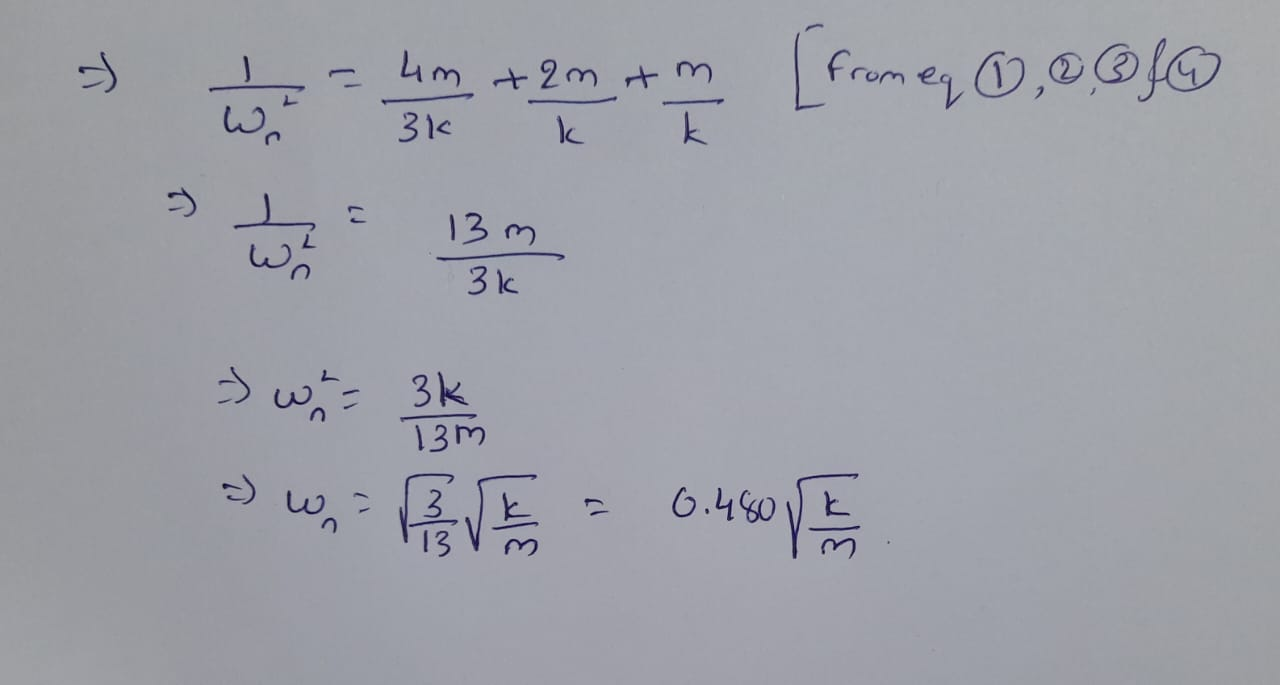 ⇒ 1/ωn² = 4m/3k + 2m/k + m/k [from eq ①,②,③ & ④
⇒ 1/ωn² = 13m/3k
⇒ ωn² = 3k/13m
⇒ ωn = √(3/13) √(k/m) = 0.480 √(k/m).